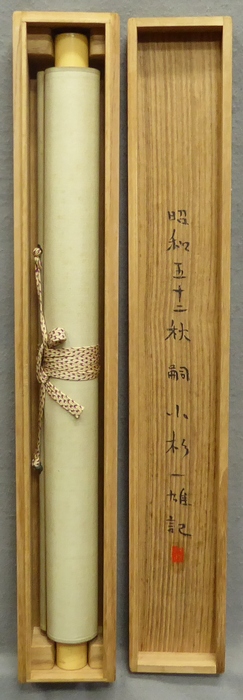 昭和五十二秋 嗣 小杉一雄記